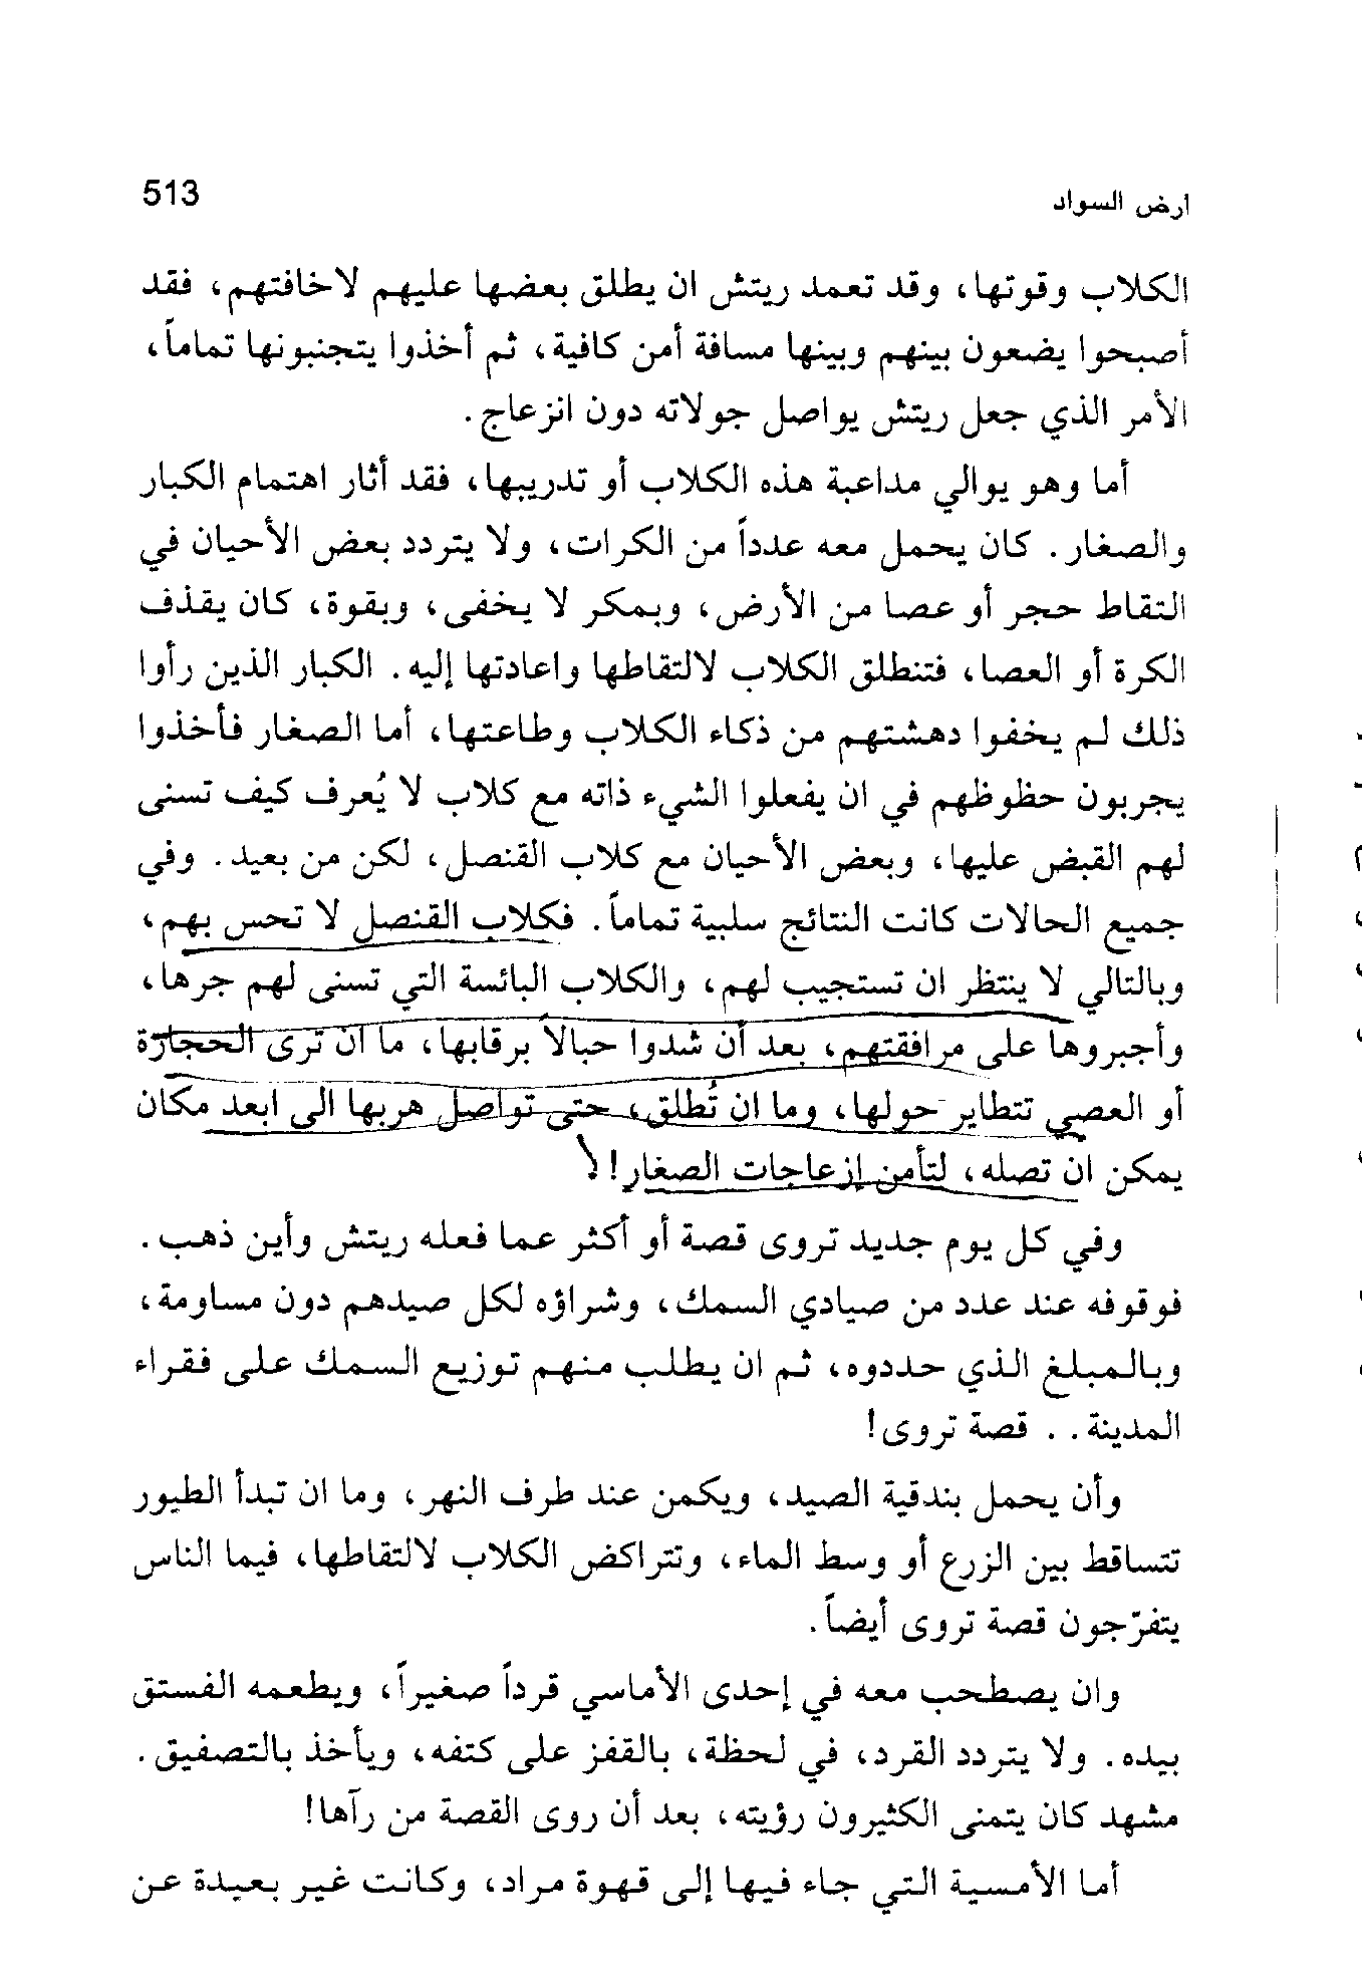 ارض السواد
513
الكلاب وقوتها، وقد تعمد ريتش ان يطلق بعضها عليهم لاخافتهم، فقد
أصبحوا يضعون بينهم وبينها مسافة أمن كافية، ثم أخذوا يتجنبونها تماماً،
الأمر الذي جعل ريتش يواصل جولاته دون انزعاج.
أما وهو يوالي مداعبة هذه الكلاب أو تدريبها، فقد أثار اهتمام الكبار
والصغار. كان يحمل معه عدداً من الكرات، ولا يتردد بعض الأحيان في
التقاط حجر أو عصا من الأرض، وبمكر لا يخفى، وبقوة، كان يقذف
الكرة أو العصا، فتنطلق الكلاب لالتقاطها واعادتها إليه. الكبار الذين رأوا
ذلك لم يخفوا دهشتهم من ذكاء الكلاب وطاعتها، أما الصغار فأخذوا
يجربون حظوظهم في ان يفعلوا الشيء ذاته مع كلاب لا يُعرف كيف تسنى
لهم القبض عليها، وبعض الأحيان مع كلاب القنصل، لكن من بعيد. وفي
جميع الحالات كانت النتائج سلبية تماماً. فكلاب القنصل لا تحس بهم،
وبالتالي لا ينتظر ان تستجيب لهم، والكلاب البائسة التي تسنى لهم جرها،
وأجبروها على مرافقتهم، بعد أن شدوا حبالاً برقابها، ما ان ترى الحجارة
أو العصي تتطاير حولها، وما ان تُطلق، حتى تواصل هربها الى ابعد مكان
يمكن ان تصله، لتأمن إزعاجات الصغار!
وفي كل يوم جديد تروى قصة أو أكثر عما فعله ريتش وأين ذهب.
فوقوفه عند عدد من صيادي السمك، وشراؤه لكل صيدهم دون مساومة،
وبالمبلغ الذي حددوه، ثم ان يطلب منهم توزيع السمك على فقراء
المدينة.. قصة تروى!
وأن يحمل بندقية الصيد، ويكمن عند طرف النهر، وما ان تبدأ الطيور
تتساقط بين الزرع أو وسط الماء، وتتراكض الكلاب لالتقاطها، فيما الناس
يتفرّجون قصة تروى أيضاً.
وان يصطحب معه في إحدى الأماسي قرداً صغيراً، ويطعمه الفستق
بيده. ولا يتردد القرد، في لحظة، بالقفز على كتفه، ويأخذ بالتصفيق.
مشهد كان يتمنى الكثيرون رؤيته، بعد أن روى القصة من رآها!
أما الأمسية التي جاء فيها إلى قهوة مراد، وكانت غير بعيدة عن